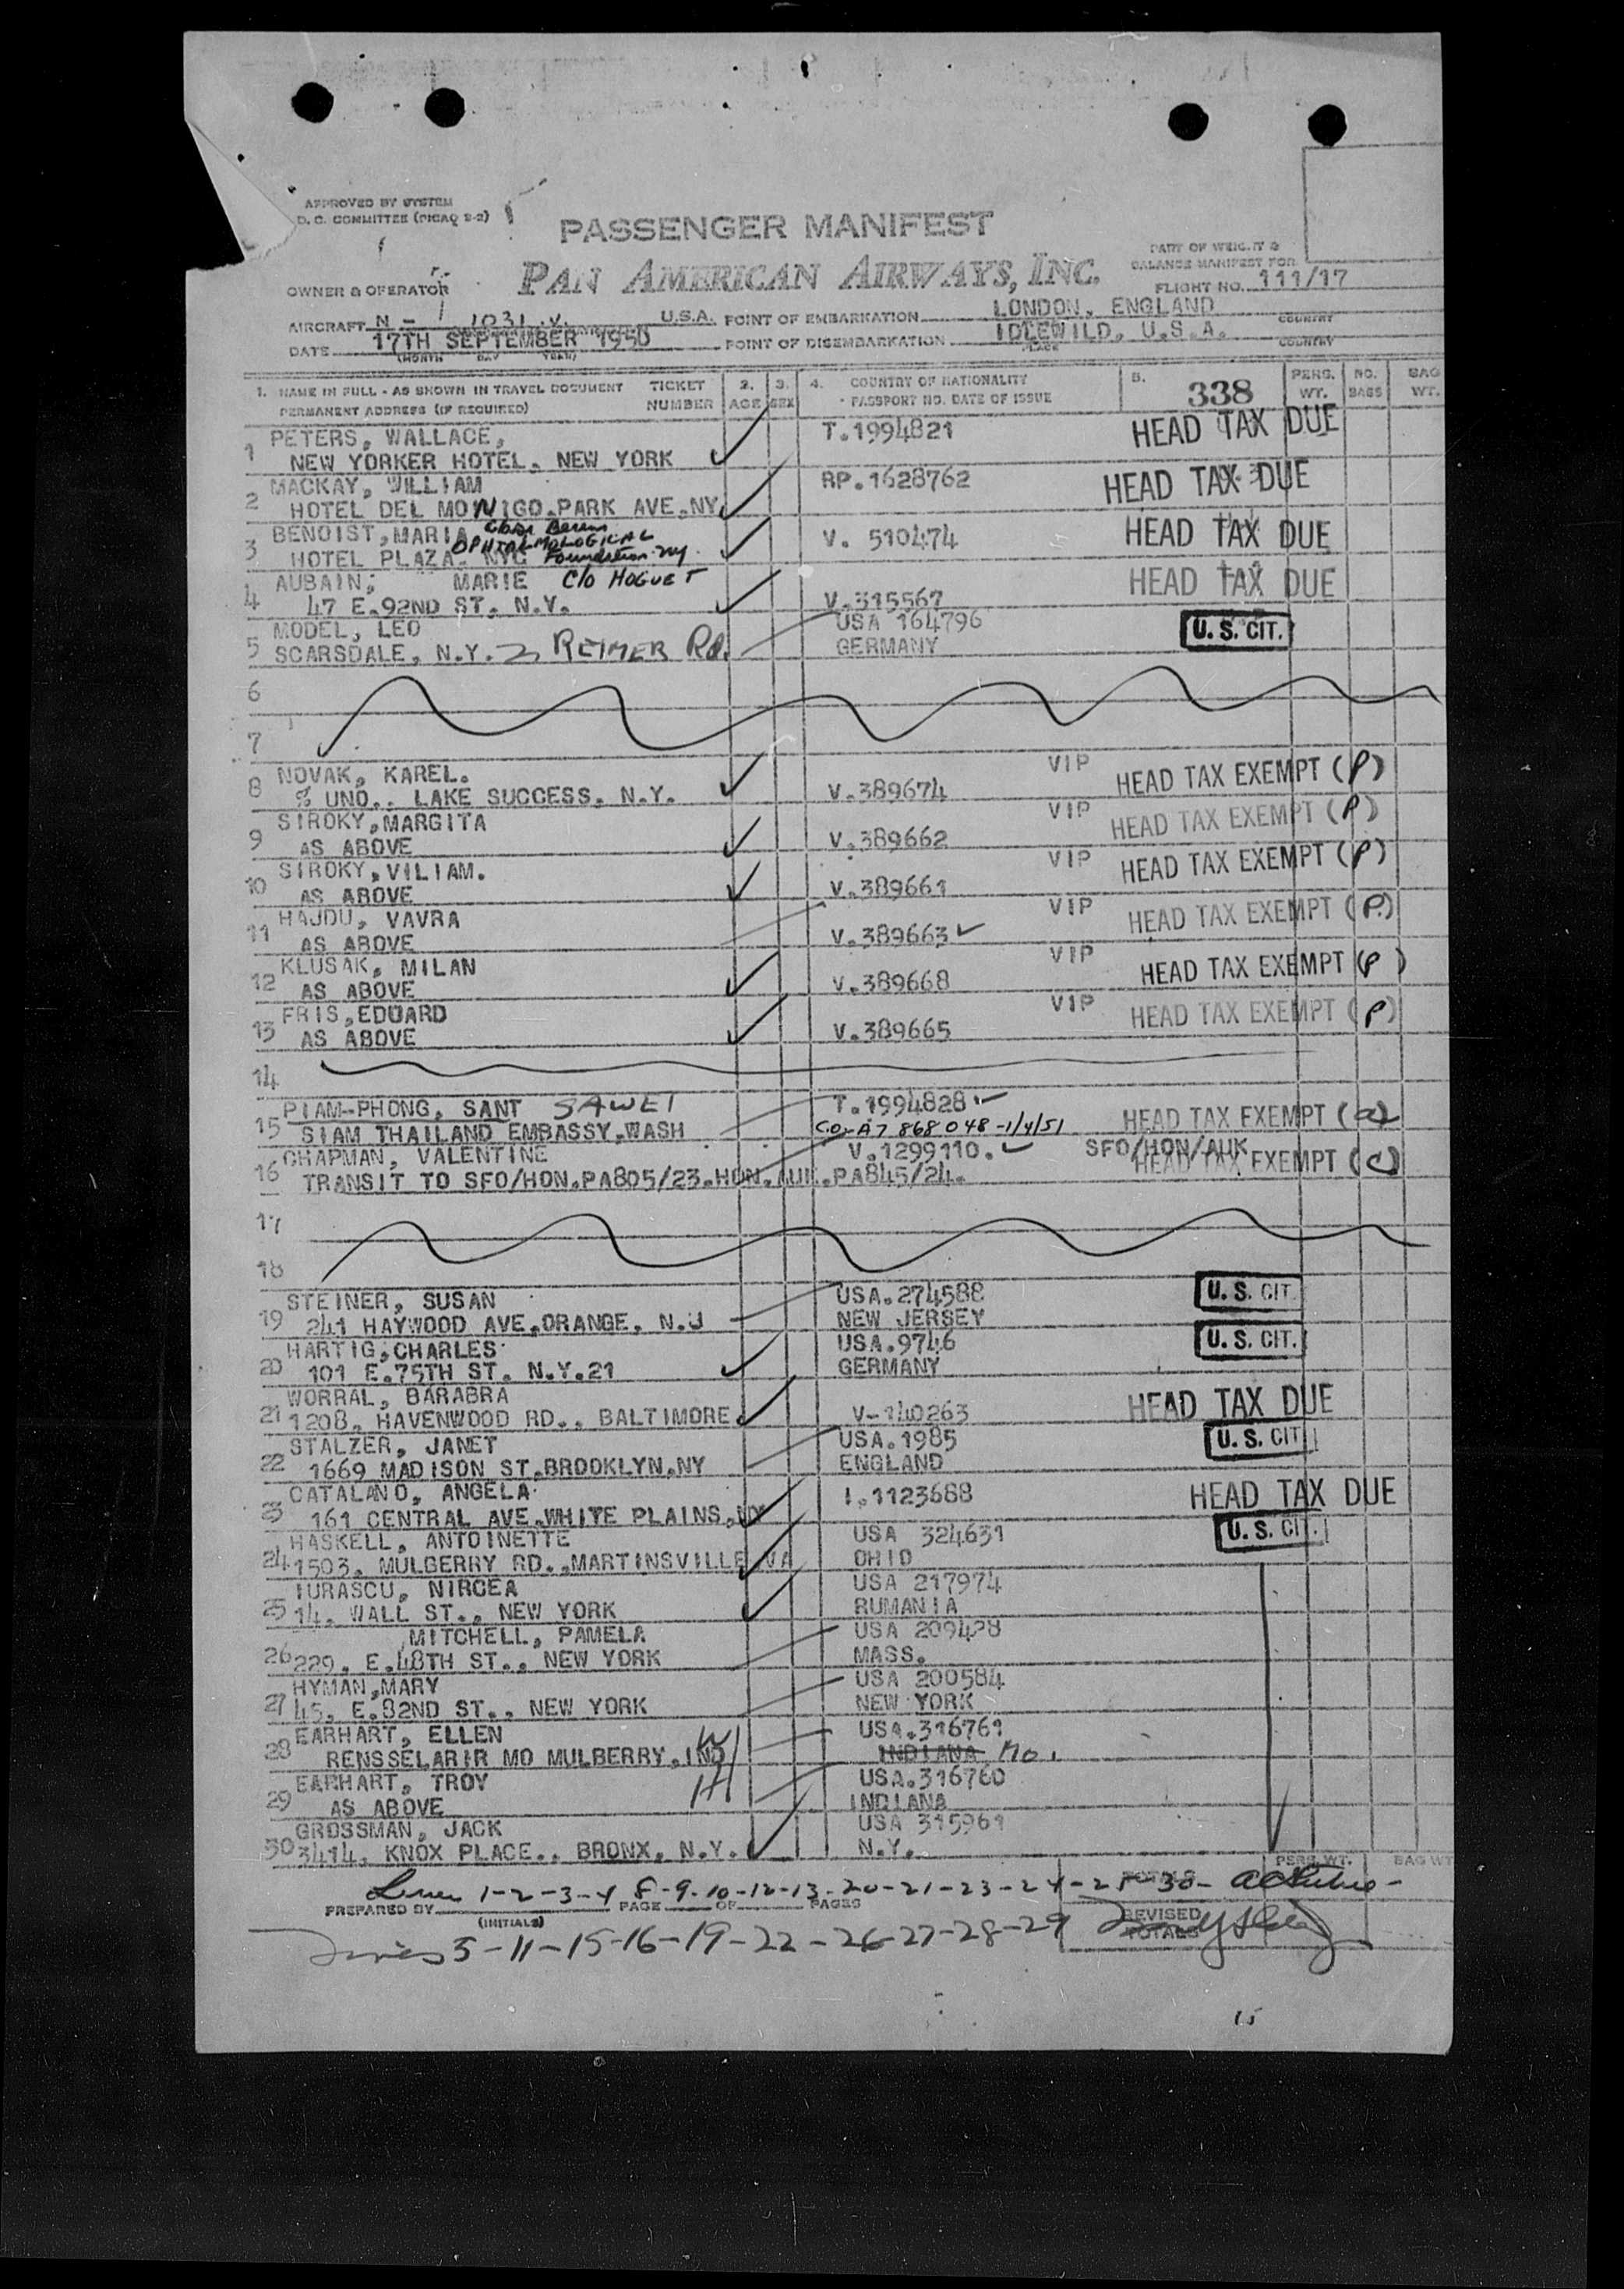 APPROVED BY SYSTEM
D. C. COMMITTEE (PICAO 2-2)
PASSENGER MANIFEST
PART OF WEIGHT &
BALANCE MANIFEST FOR
OWNER & OPERATOR PAN AMERICAN AIRWAYS, INC. FLIGHT NO. 111/17
AIRCRAFT N - 1031 V U.S.A. POINT OF EMBARKATION LONDON, ENGLAND COUNTRY
DATE 17TH SEPTEMBER 1950 POINT OF DISEMBARKATION IDLEWILD, U.S.A. COUNTRY
(MONTH DAY YEAR) PLACE
1. NAME IN FULL - AS SHOWN IN TRAVEL DOCUMENT TICKET 2. 3. 4. COUNTRY OF NATIONALITY 5. 338 PERG. NO. BAG
PERMANENT ADDRESS (IF REQUIRED) NUMBER AGE SEX PASSPORT NO. DATE OF ISSUE WT. BAGS WT.
1 PETERS, WALLACE, T.1994821 HEAD TAX DUE
NEW YORKER HOTEL, NEW YORK
2 MACKAY, WILLIAM RP.1628762 HEAD TAX DUE
HOTEL DEL MONIGO.PARK AVE.NY
3 BENOIST, MARIA V. 510474 HEAD TAX DUE
OPHTALMOLOGICAL
HOTEL PLAZA. NYC Foundation. ny.
4 AUBAIN, MARIE C/O HOGUET HEAD TAX DUE
47 E.92ND ST. N.Y. V.315567
5 MODEL, LEO USA 164796 U. S. CIT.
SCARSDALE, N.Y. 2, REIMER Rd. GERMANY
6
7
8 NOVAK, KAREL. VIP HEAD TAX EXEMPT (P)
% UNO.. LAKE SUCCESS. N.Y. V.389674
9 SIROKY,MARGITA VIP HEAD TAX EXEMPT (P)
AS ABOVE V.389662
10 SIROKY,VILIAM. VIP HEAD TAX EXEMPT (P)
AS ABOVE V.389661
11 HAJDU, VAVRA VIP HEAD TAX EXEMPT (P)
AS ABOVE V.389663
12 KLUSAK, MILAN VIP HEAD TAX EXEMPT (P)
AS ABOVE V.389668
13 FRIS,EDUARD VIP HEAD TAX EXEMPT (P)
AS ABOVE V.389665
14
15 PIAM-PHONG, SANT SAWET T.1994828 HEAD TAX EXEMPT (a)
SIAM THAILAND EMBASSY,WASH CO-A7 868 048 -1/4/51
16 CHAPMAN, VALENTINE V.1299110. SFO/HON/AUK HEAD TAX EXEMPT (C)
TRANSIT TO SFO/HON.PA805/23.HON.AUK.PA845/24.
17
18
19 STEINER, SUSAN USA.274588 U. S. CIT.
241 HAYWOOD AVE,ORANGE, N.J NEW JERSEY
20 HARTIG,CHARLES USA.9746 U. S. CIT.
101 E.75TH ST. N.Y.21 GERMANY
21 WORRAL, BARABRA HEAD TAX DUE
1208, HAVENWOOD RD., BALTIMORE V-140263
22 STALZER, JANET USA.1985 U. S. CIT
1669 MADISON ST.BROOKLYN.NY ENGLAND
23 CATALANO, ANGELA I.1123688 HEAD TAX DUE
161 CENTRAL AVE.WHITE PLAINS.NY
24 HASKELL, ANTOINETTE USA 324631 U. S. CIT.
1503. MULBERRY RD.,MARTINSVILLE VA OHIO
25 TURASCU, NIRCEA USA 217974
14. WALL ST., NEW YORK RUMANIA
26 MITCHELL, PAMELA USA 209428
229. E.48TH ST., NEW YORK MASS.
27 HYMAN,MARY USA 200584
45, E.82ND ST., NEW YORK NEW YORK
28 EARHART, ELLEN W USA.316761
RENSSELARIR MO MULBERRY.IND INDIANA Mo.
29 EARHART, TROY H USA.316760
AS ABOVE INDIANA
30 GROSSMAN, JACK USA 315961
3414. KNOX PLACE., BRONX, N.Y. N.Y.
PSRG. WT. BAG WT
1-2-3-4 8-9-10-12-13-20-21-23-24-25-30-
PREPARED BY (INITIALS) PAGE OF PAGES REVISED TOTALS
5-11-15-16-19-22-26-27-28-29
15